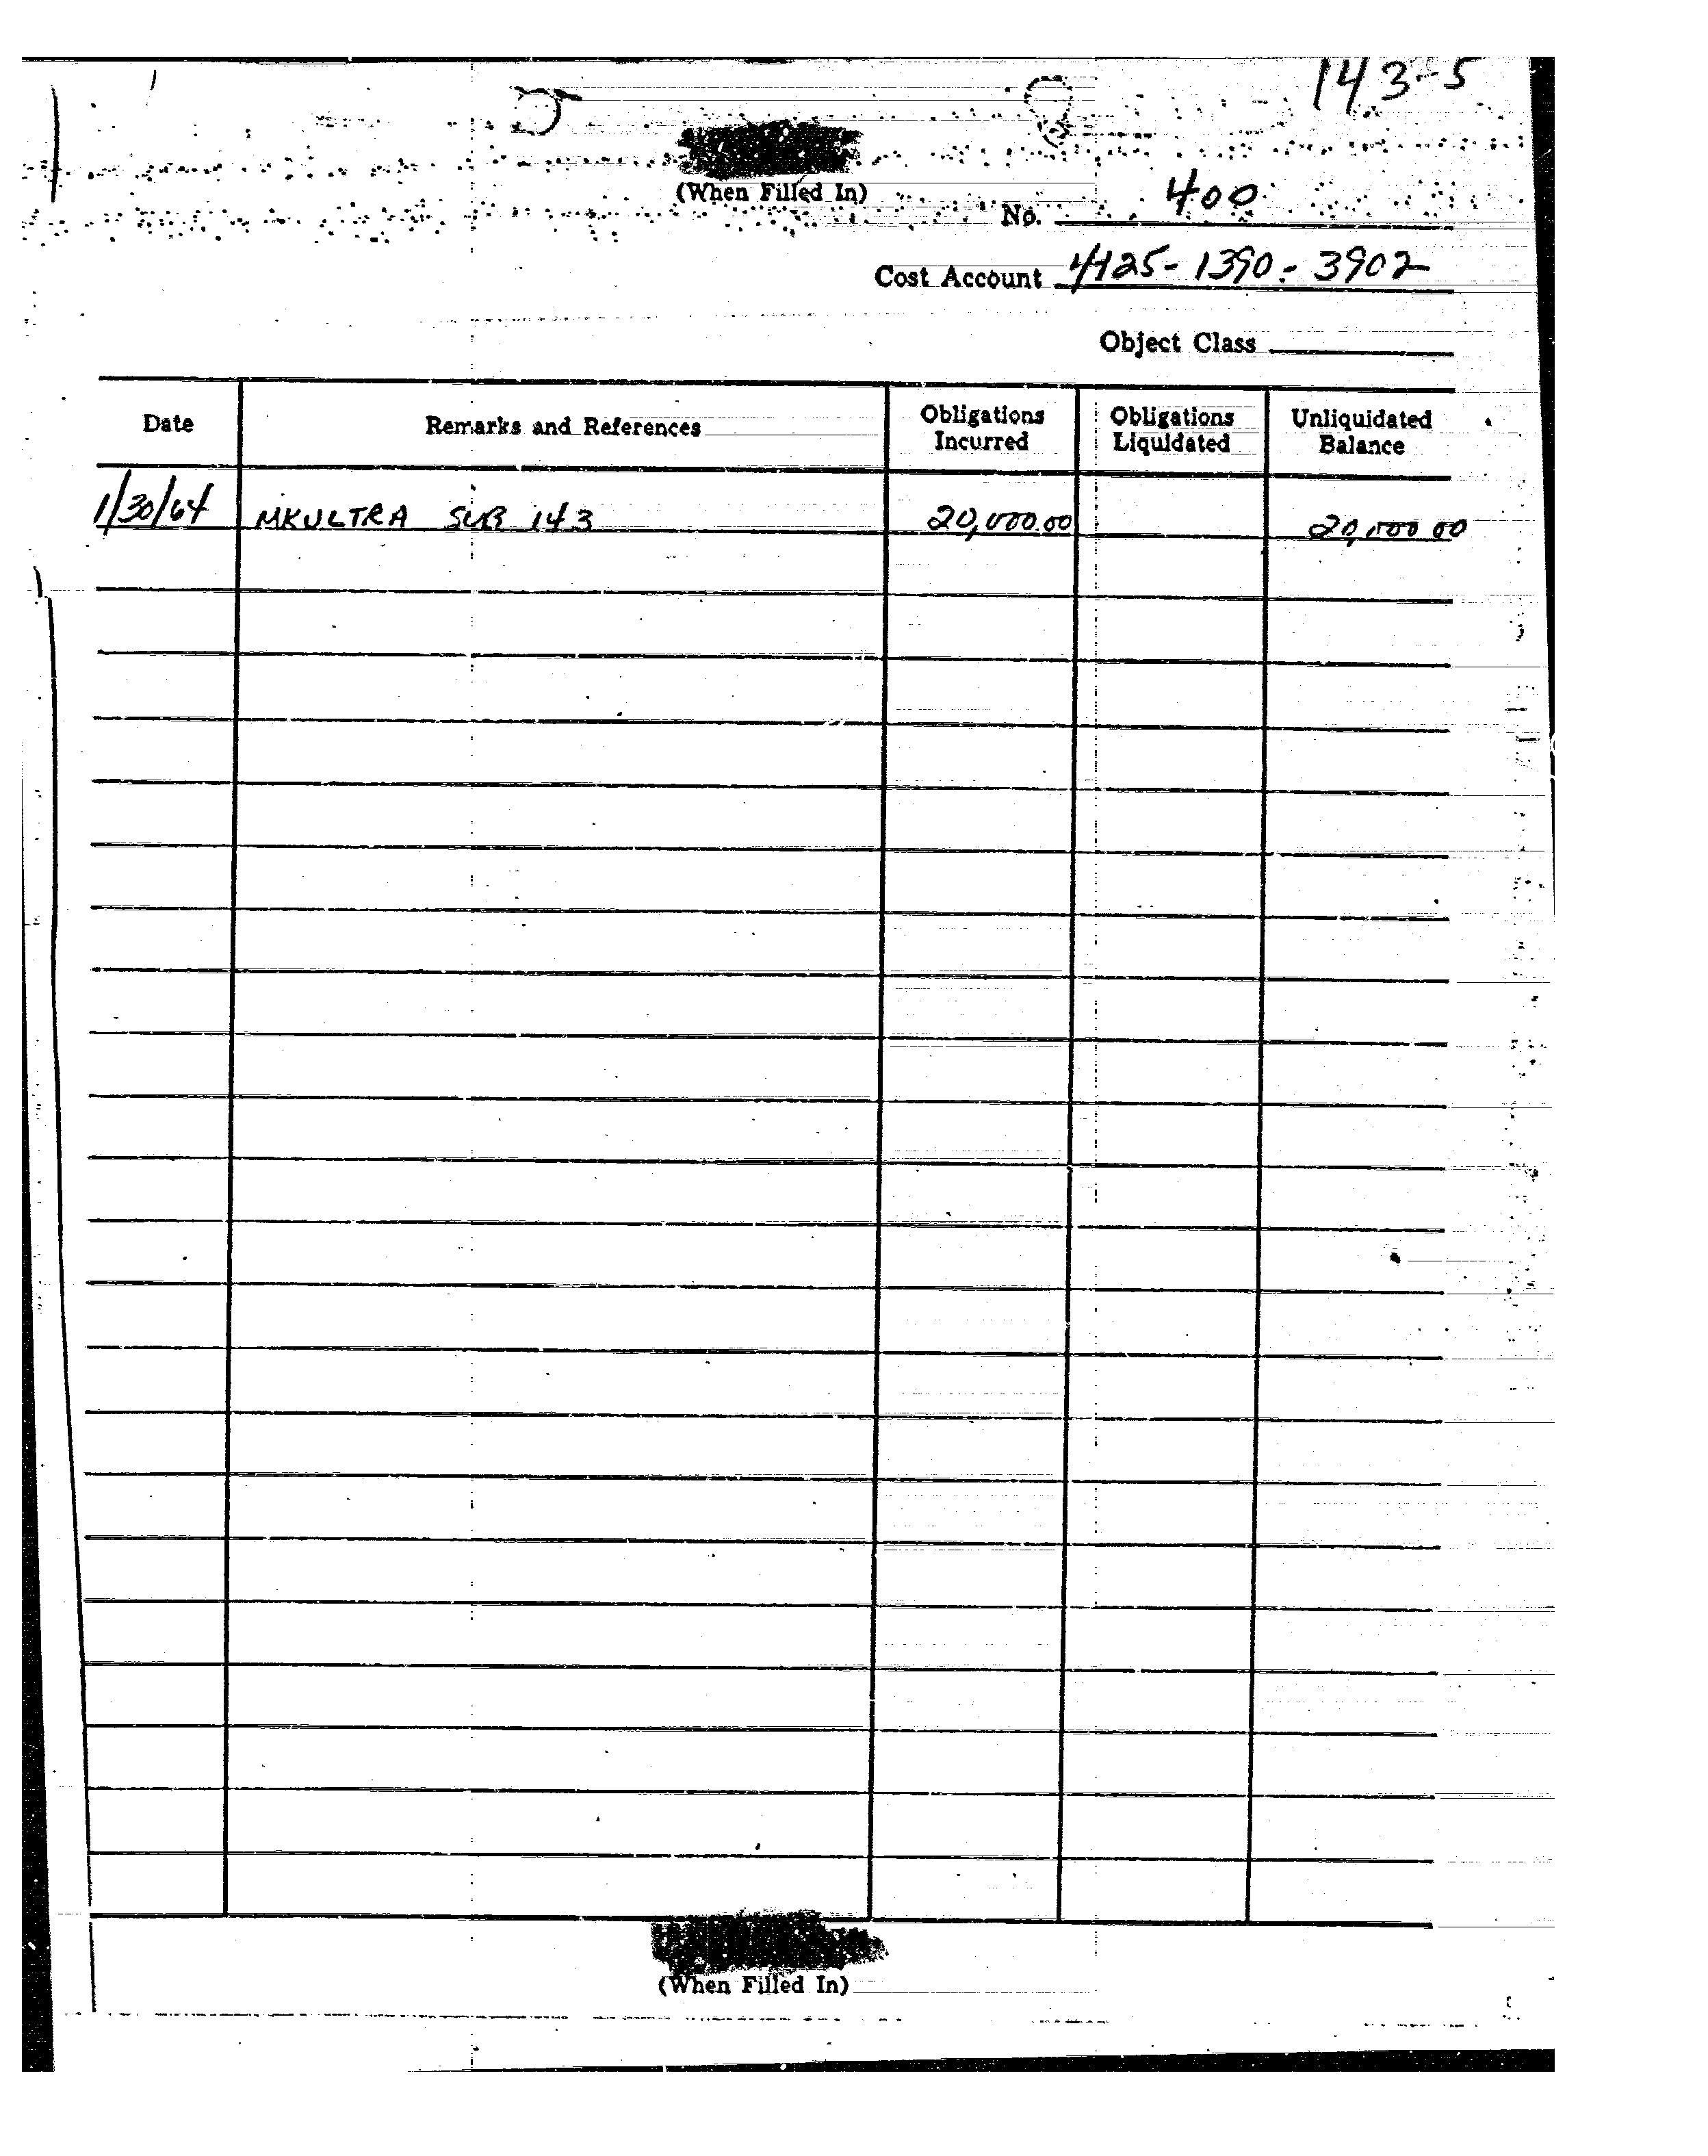 143-5
(When Filled In)
No. 400
Cost Account 4125-1390-3902
Object Class
Date Remarks and References Obligations Incurred Obligations Liquidated Unliquidated Balance
1/30/64 MKULTRA SUB 143 20,000.00 20,000 00
(When Filled In)